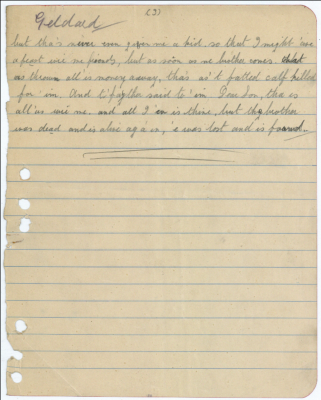 Geldard (3)
but tha's never even given me a kid, so that I might 'ave
a feast wi' me friends, but as soon as me brother comes
as thrown all is money away, tha's as't fatted calf killed
for 'im. And t'fayther said to 'im Dear Son, tha es
all'us wi' me, and all I 'an is thine, but thy brother
was dead and is alive agais, 'e was lost and is found.